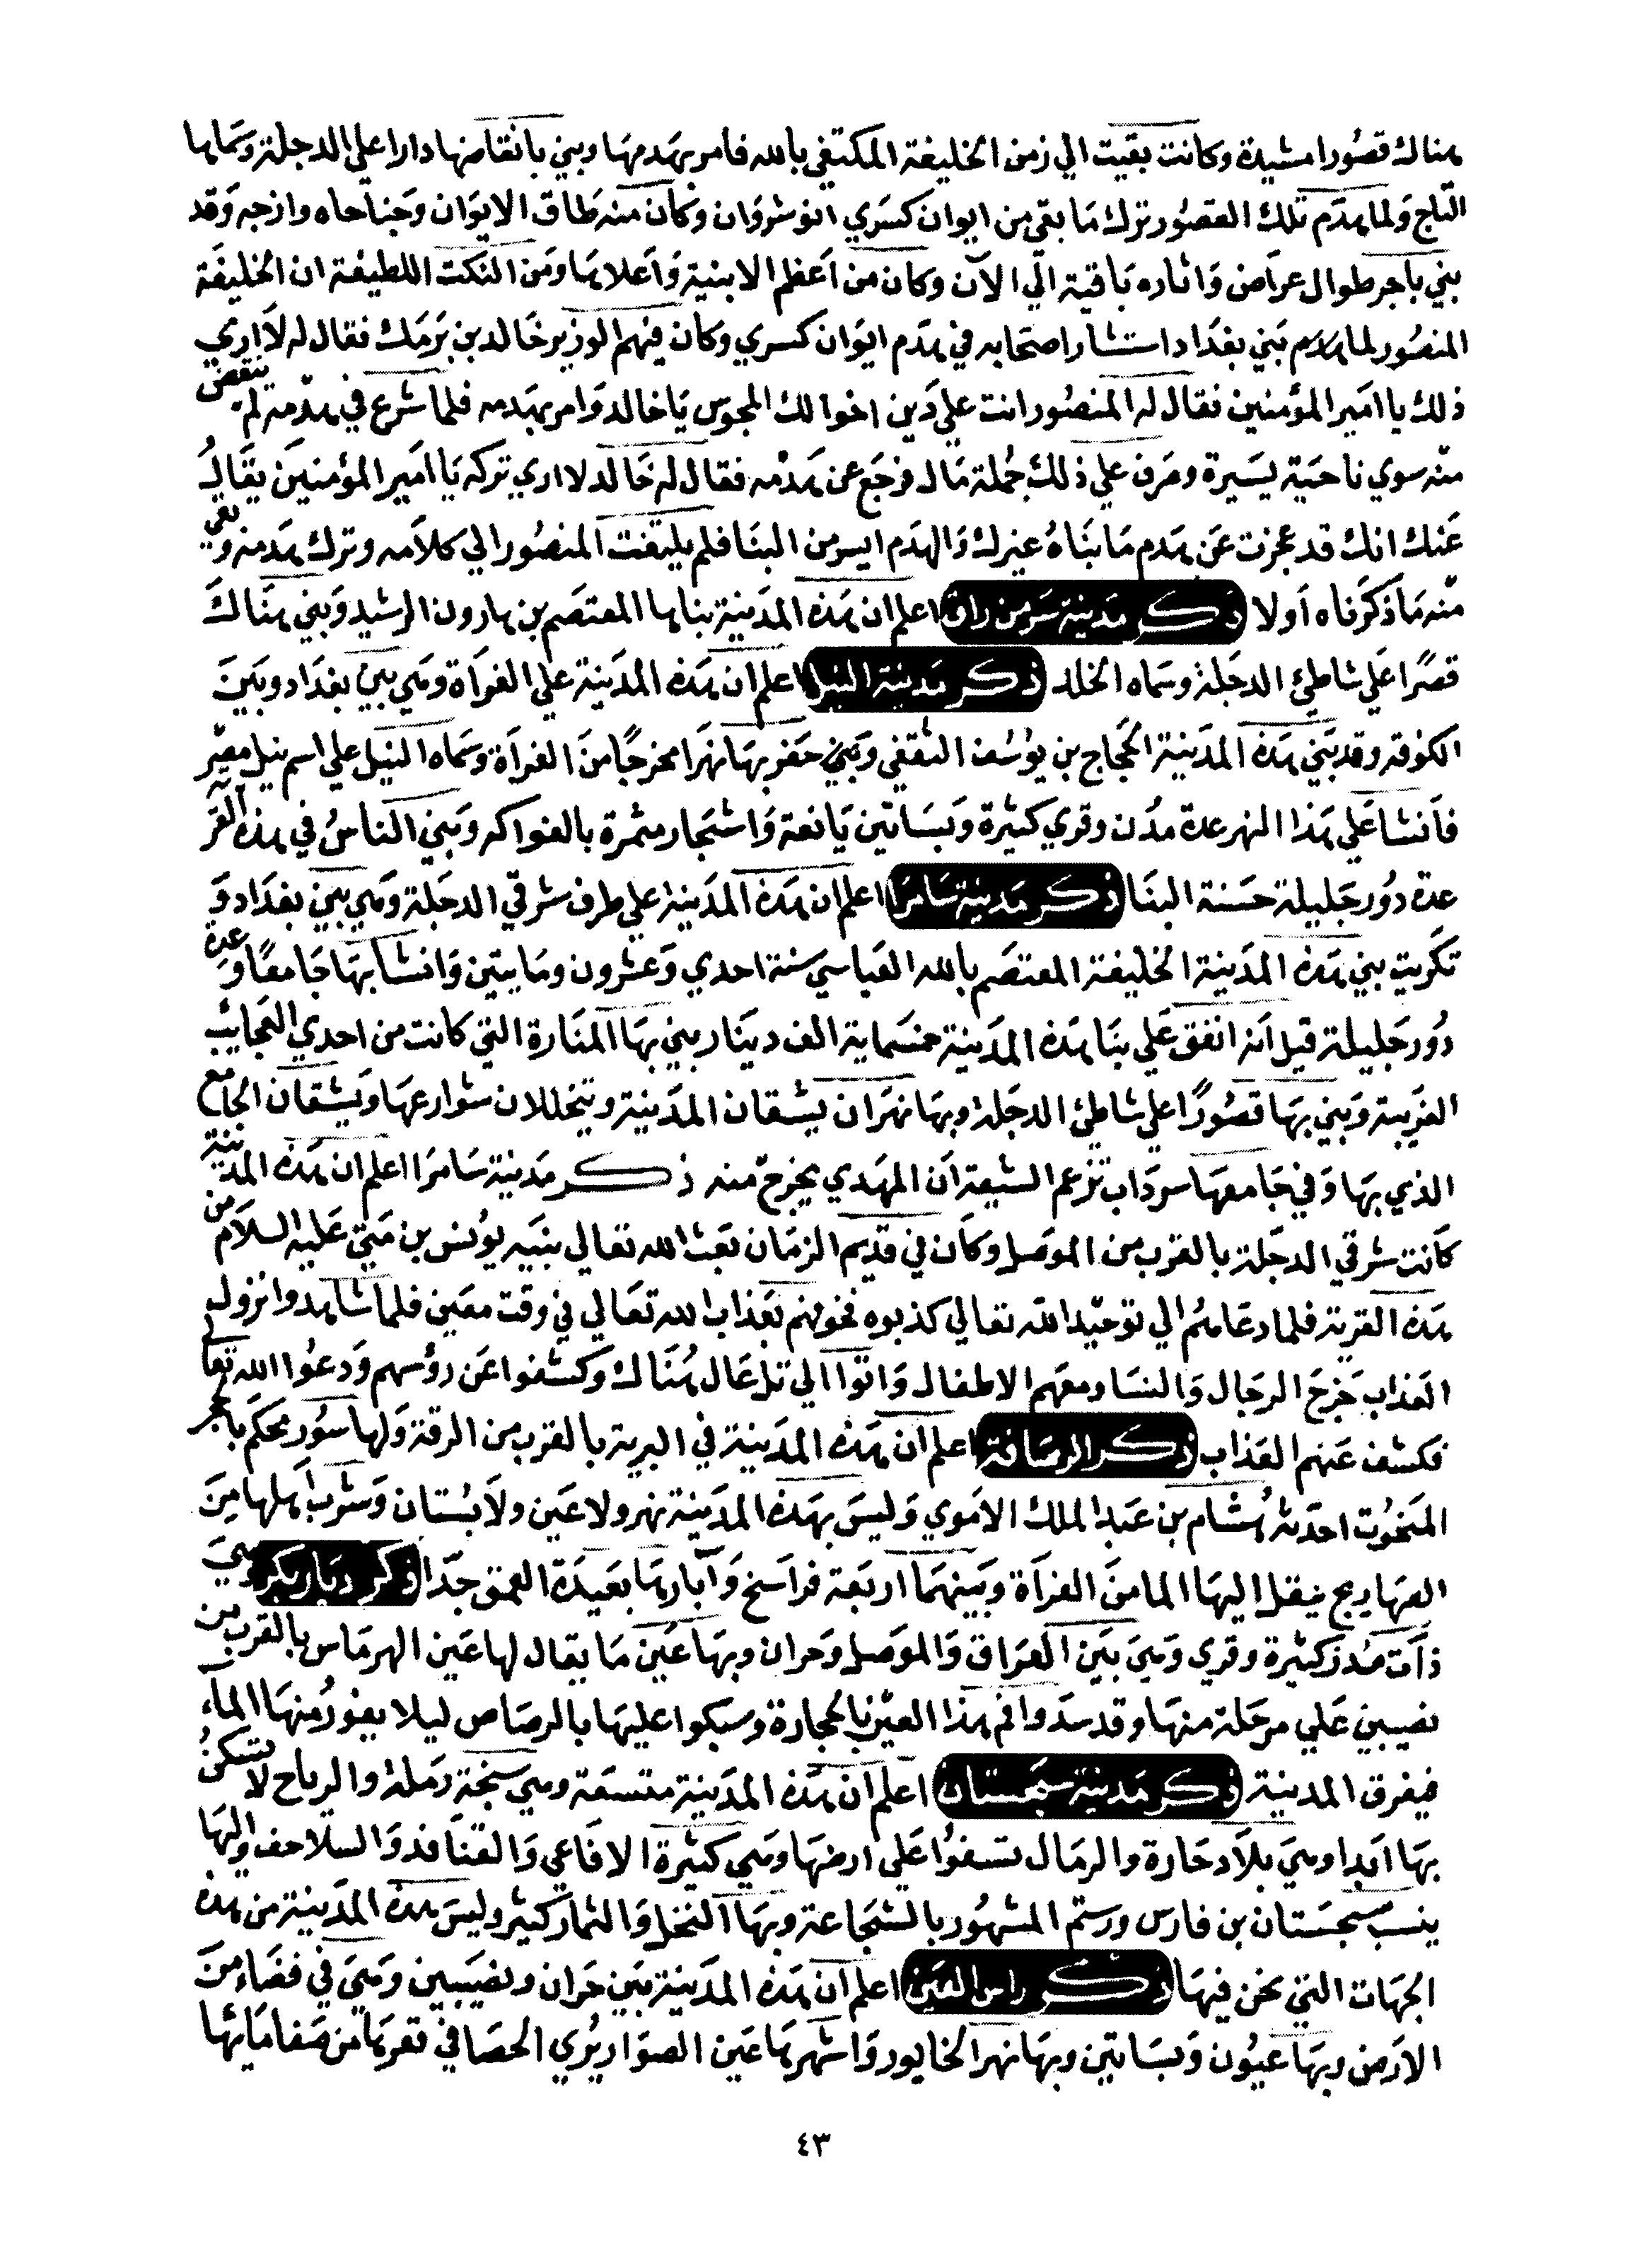 هناك قصُورا مشيدة وكانت بقيت الي زمن الخليفة المكتفي بالله فامر بهَدمهَا وبني بانقاضها دارا علي الدجلة وسَماها
التاج وَلما هدَم تلك القصُور ترك مَا بقي من ايوان كسَري انو شروَان وكان منه طاق الايوَان وَجناحاه وازجه وَقد
بني باجر طوال عراض وَاثاره بَاقية الي الآن وكان من اَعظم الابنية وَاَعلاهَا ومَن النكت اللطيفة ان الخليفَة
المنصُور لما هدم بَني بغدَاد استشار اصحابه في هدَم ايوَان كسري وكان فيهم الوزير خَالد بن برَمَك فقال له لاَ اري
ذلك يا امَير المؤمنين فقال له المنصُور انت علي دَين اخوالك المجوس يَا خالد وَامر بهَدمه فلما شرع في هدمه لم ينقض
منه سوي ناحيَة يسَيرة وصَرف علي ذلك جُملة مَال فرجَع عن هَدمه فقال له خَالد لا اري تركه يَا امَير المؤمنينَ يقَال
عَنك انك قد عجزت عَن هدم مَا بنَاهُ غيرك وَالهدَم ايسر من البنَا فلم يلتفت المنصُور الي كلاَمه وترك هدَمه وبقي
منه مَا ذكرَناه اَولا ذكر مَدينة سَرمن راي اعلم ان هَذه المدَينة بناها المعتصَم بن هارون الرشيد وَبني هنَاك
قصرًا عَلي شاطئ الدجَلة وسَماه الخلد ذكر مَدينة النيل اعلم ان هَذه المدَينة علي الفرَاة وهَي بينَ بغدَاد وبَينَ
الكوُفة وقد بَني هذه المدَينة الحجَاج بن يوُسُف الثقفي وَبني حَفر بهَا نهرَا مخرجًا منَ الفرَاة وسَمَاه النيل علي اسم نيل مصر
فاَنشا عَلي هَذا النهر عدة مدُن وقري كثيرة وَبسَاتين يَانعة وَاشجَار مثمرة بالفواكه وبَني الناسُ في هذه القرية
عدة دوُر جَليلة حَسَنة البنَا ذكر مَدينة سَامَرا اعلم ان هَذه المدَينة علي طرف شرقي الدجَلة وهَي بينَ بغدَاد وَ
تكرَيت بني هَذه المدَينة الخليفة المعتصَم بالله العبَاسي سنة احدي وَعشرون ومايتَين وَانشا بهَا جَامعًا وَعدة
دُور جَليلة قيل اَنه انفق عَلي بنَا هَذه المدَينة خمسَماية الف دينَار بني بهَا المنَارة التي كانت من احدي العجَايب
الغرَيبة وَبَني بهَا قصُورًا علي شاطئ الدجَلة وبهَا نهرَان يشقان المدَينة ويتخللان شوارعهَا وَيشقان الجامع
الذي بهَا وَفي جَامعهَا سردَاب تزعم الشيعة اَن المهَدي يخرج منه ذكر مَدينة سَامرَا اعلم ان هَذه المدينة
كاَنت شرقي الدجَلة بالقرب من الموصَل وكاَن في قدَيم الزمَان بعَث الله تعالي نبيَه يوُنس بن مَتي عَليه السلاَم من
هَذه القريَة فلما دعَاهمُ الي توحَيد الله تعالي كذبوه فخوفهم بعَذاب الله تعَالي في وقت معَين فلما شاهدوا نزول
العَذاب خَرجَ الرجَال وَالنسَا ومعَهم الاطفال وَاتوا الي تل عَال هُنَاك وكشفوا عَن رؤسهم وَدعُوا الله تعَالي
فكشف عَنهم العَذاب ذكر الرصَافة اعلم ان هَذه المدَينة في البرية بالقرب من الرقة وَلها سوُر محكم بالحجر
المنَحُوت احدَثه هُشام بن عَبد الملك الامَوي وَليسَ بهَذه المدَينة نهر ولا عَين ولاَ بسُتان وَشرب اَهلها منَ
الصهَاريج ينقل اليهَا الما منَ الفرَاة وَبَينهمَا اربَعة فراَسخ وَآبارهَا بعَيدَة العمق جدَا ذكر ديَار بكر وهيَ
ذاَت مُدن كثيرة وقري وَهيَ بَين العرَاق وَالموَصل وَحران وبهَا عَين مَا يقال لها عَين الهرمَاس بالقرب من
نصيبين عَلي مرحَلة منهَا وقد سدَوا فم هذا العين بالحجارة وسبكوا عليهَا بالرصاص ليلا يفورُ منهَا الماء
فيغرق المدينة ذكر مَدينة سجَستان اعلم ان هَذه المدَينة متسعَة وهي سبخة رَملة والرياح لا تسكنُ
بهَا ابَدا وهيَ بلاَد حَارة والرمَال تسفوُا عَلي ارضهَا وهَي كثيرَة الافَاعي وَالقنَافد وَالسلاحف وإليها
ينسَب سجسَتان بن فارس ورستم المشهُور بالشجَاعة وبهَا النخل وَالثمار كثير وليسَ هَذه المدَينة من هذه
الجهَات التي نحن فيهَا ذكر راس العَين اعلم ان هَذه المدَينة بَين حَران ونصَيبين وهَيَ في فضَاء منَ
الارَض وبهَا عيُون وَبسَاتين وبهَا نهر الخابور وَاشهرهَا عَين الصوَار يرُي الحصَا في قعرهَا من صَفا مَائها
٤٣